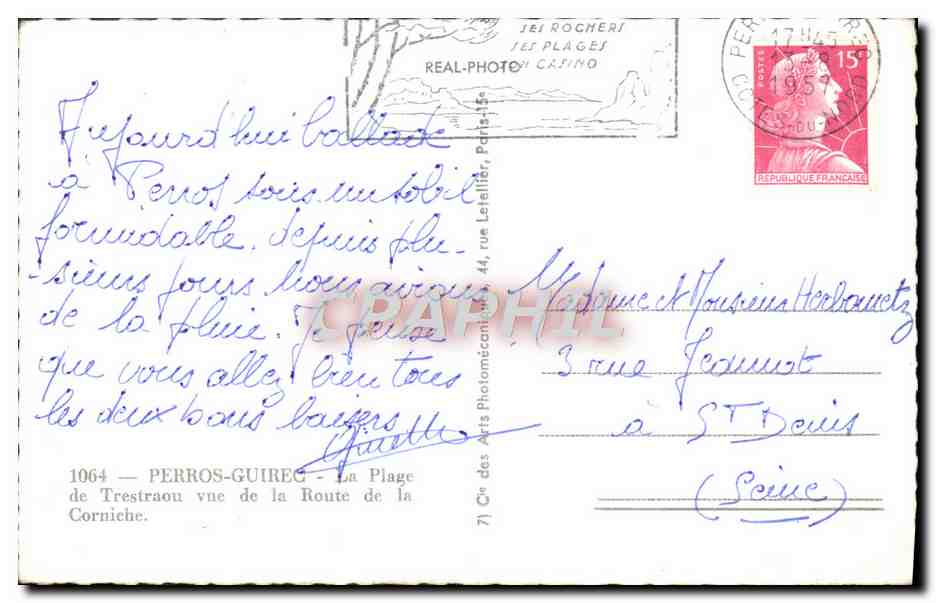 SES ROCHERS
SES PLAGES
SON CASINO
REAL-PHOTO
17H45
1957
COTES-DU-NORD
POSTES
15F
REPUBLIQUE FRANÇAISE
Aujourd'hui ballade
à Perros sous un sobil
formidable. depuis plu-
-sieurs jours nous avions
de la pluie. Je pense
que vous allez bien tous
les deux bons baisers
1064 — PERROS-GUIREC - La Plage
de Trestraou vue de la Route de la
Corniche.
7) Cie des Arts Photomécaniques, 44, rue Letellier, Paris-15e
CPAPHIL
Madame et Monsieur
3 rue Jeannot
à St Denis
(Seine)